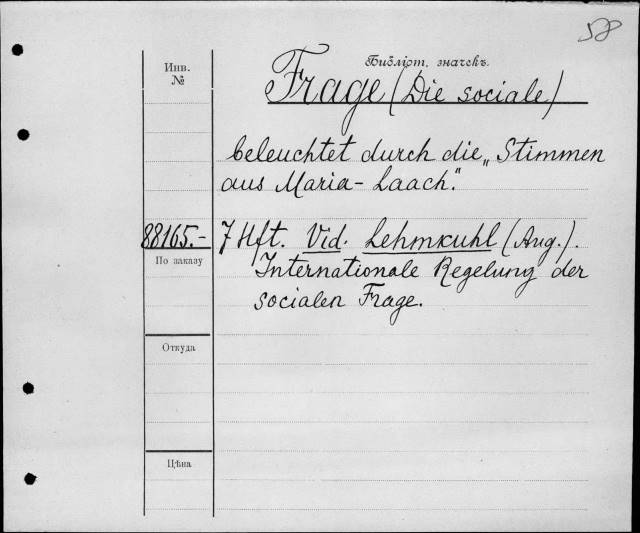 58
Библіот. значекъ.
Инв.
№
Frage (Die sociale)
beleuchtet durch die „Stimmen
aus Maria-Laach".
88165.- 7 Hft. Vid. Lehmkuhl (Aug.).
По заказу
Internationale Regelung der
socialen Frage.
Откуда
Цѣна